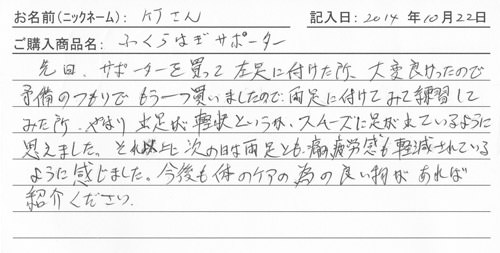 お名前(ニックネーム): KTさん 記入日: 2014年10月22日
ご購入商品名: ふくらはぎサポーター
先日、サポーターを買って左足に付けた所、大変良かったので
予備のつもりでもう一つ買いましたので両足に付けてみて練習して
みた所、やはり出足が軽快というか、スムーズに足が出ているように
思えました。それ以上に次の日は両足とも、痛み疲労感も軽減されている
ように感じました。今後も体のケアの為の良い物があれば
紹介ください。